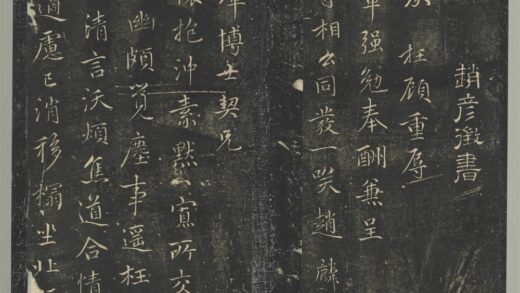 趙彥徵書
枉顧重辱
强勉奉酬兼呈
相公同發一笑趙麟
博士契兄
抱沖素默〻寡所交
幽頗覺塵事遥枉
清言沃煩焦道合情
適慮已消移榻坐北